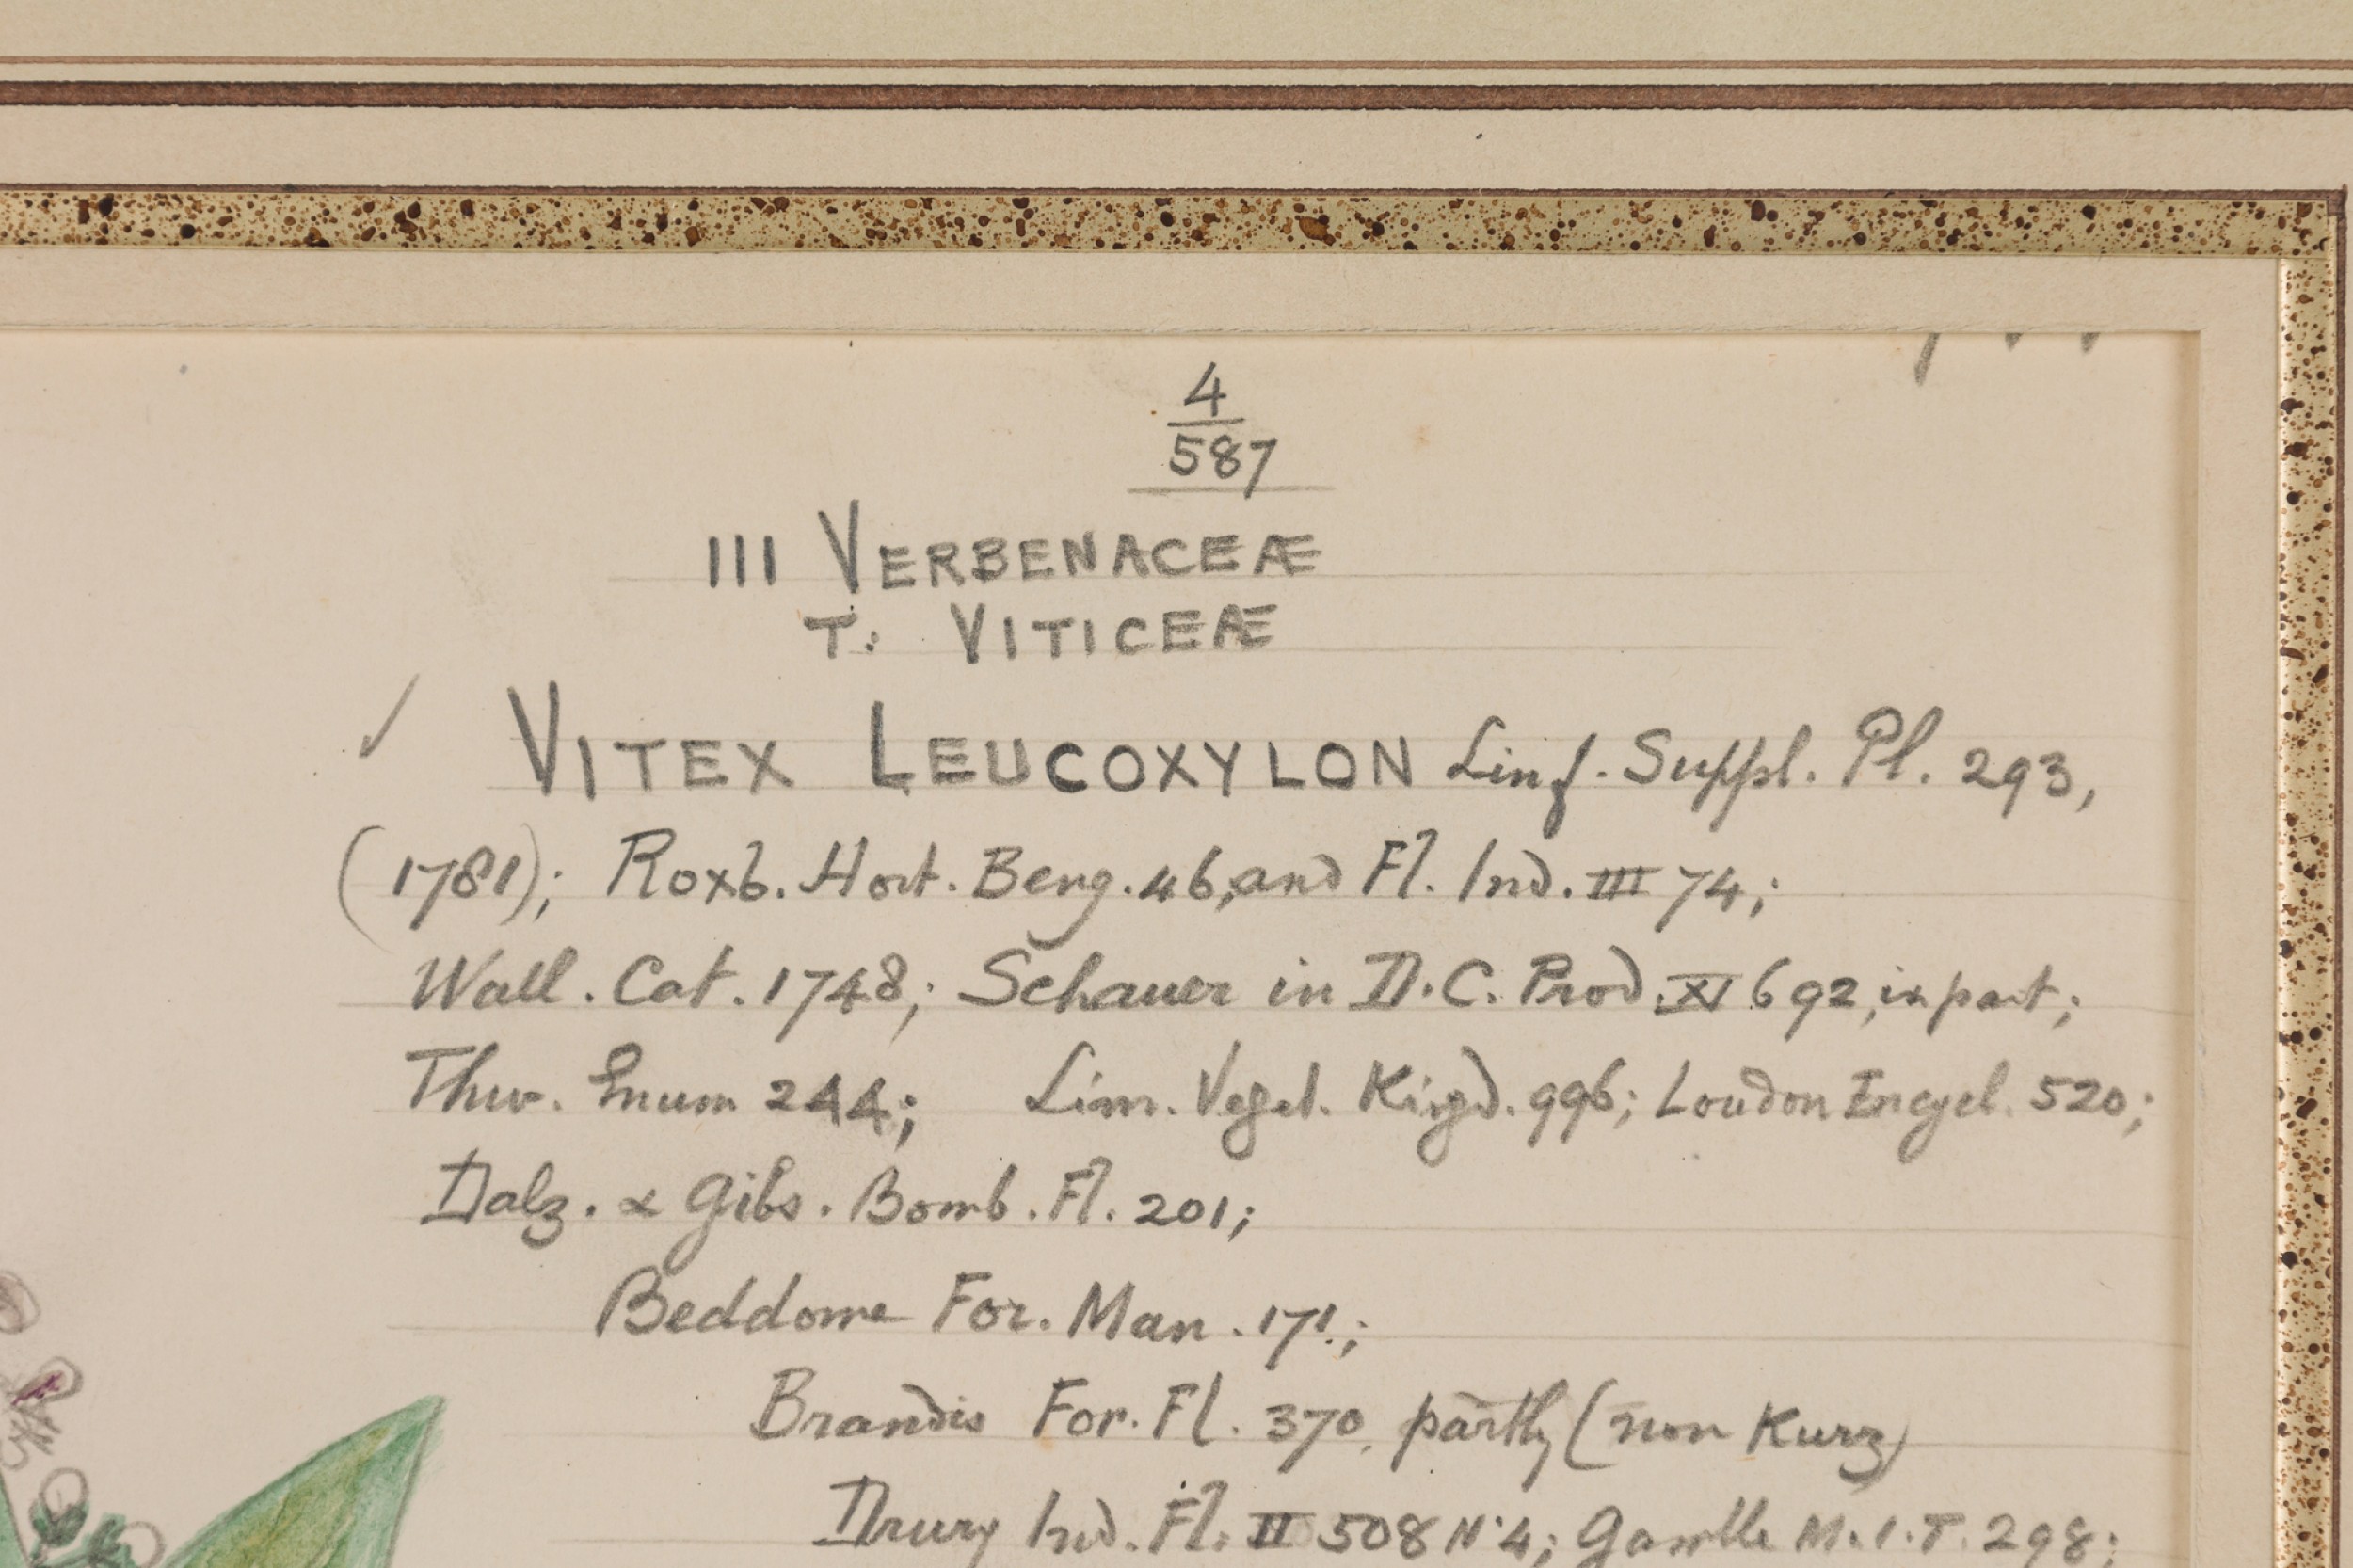 4
587
III VERBENACEÆ
T: VITICEÆ
VITEX LEUCOXYLON Linf. Suppl. Pl. 293,
(1781); Roxb. Hort. Beng. 46, and Fl. Ind. III 74;
Wall. Cat. 1748; Schauer in D.C. Prod. XI 692, in part;
Thw. Enum 244; Lim. Veget. Kigd. 996; Loudon Encycl. 520;
Dalz. & Gibs. Bomb. Fl. 201;
Beddome For. Man. 171;
Brandis For. Fl. 370, partly (non Kurz)
Drury Ind. Fl. II 508 N°4; Gamble M.I.T. 298;